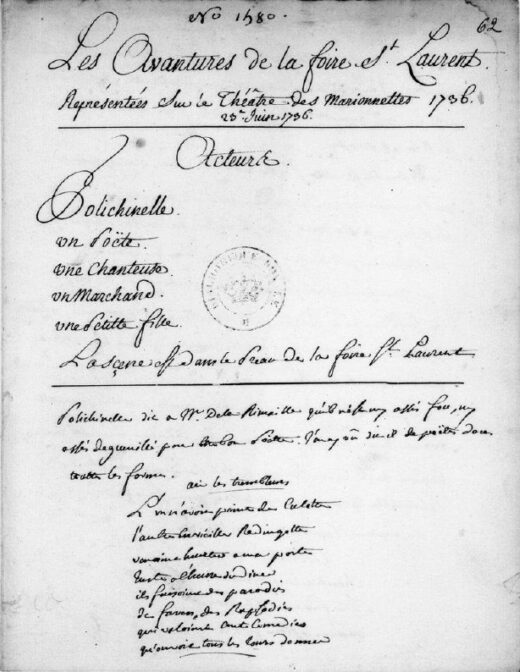 No 1480.
62
Les Avantures de la foire St. Laurent.
Représentées sur le Théâtre des Marionnettes 1736.
23e Juin 1736.
Acteurs.
Polichinelle.
un Poëte.
une Chanteuse.
un Marchand.
une Petitte fille.
La sçene est dans le Preau de la foire St. Laurent
Polichinelle dit a Mr. De la Rimaille qu'il n'est ny assés fou, ny
assés deguenillé pour un bon Poëte. J'en ay vû dit il de poëtes dans
toutes les formes.
air les trembleurs
L'un n'avoit point de Culotte
l'autre en vieille Redingotte
venoit a ma porte
juste a l'heure du diner
ils faisoient des parodies
de farces, des Rapsodies
qui valoient cent Comedies
qu'on voit tous les jours donner